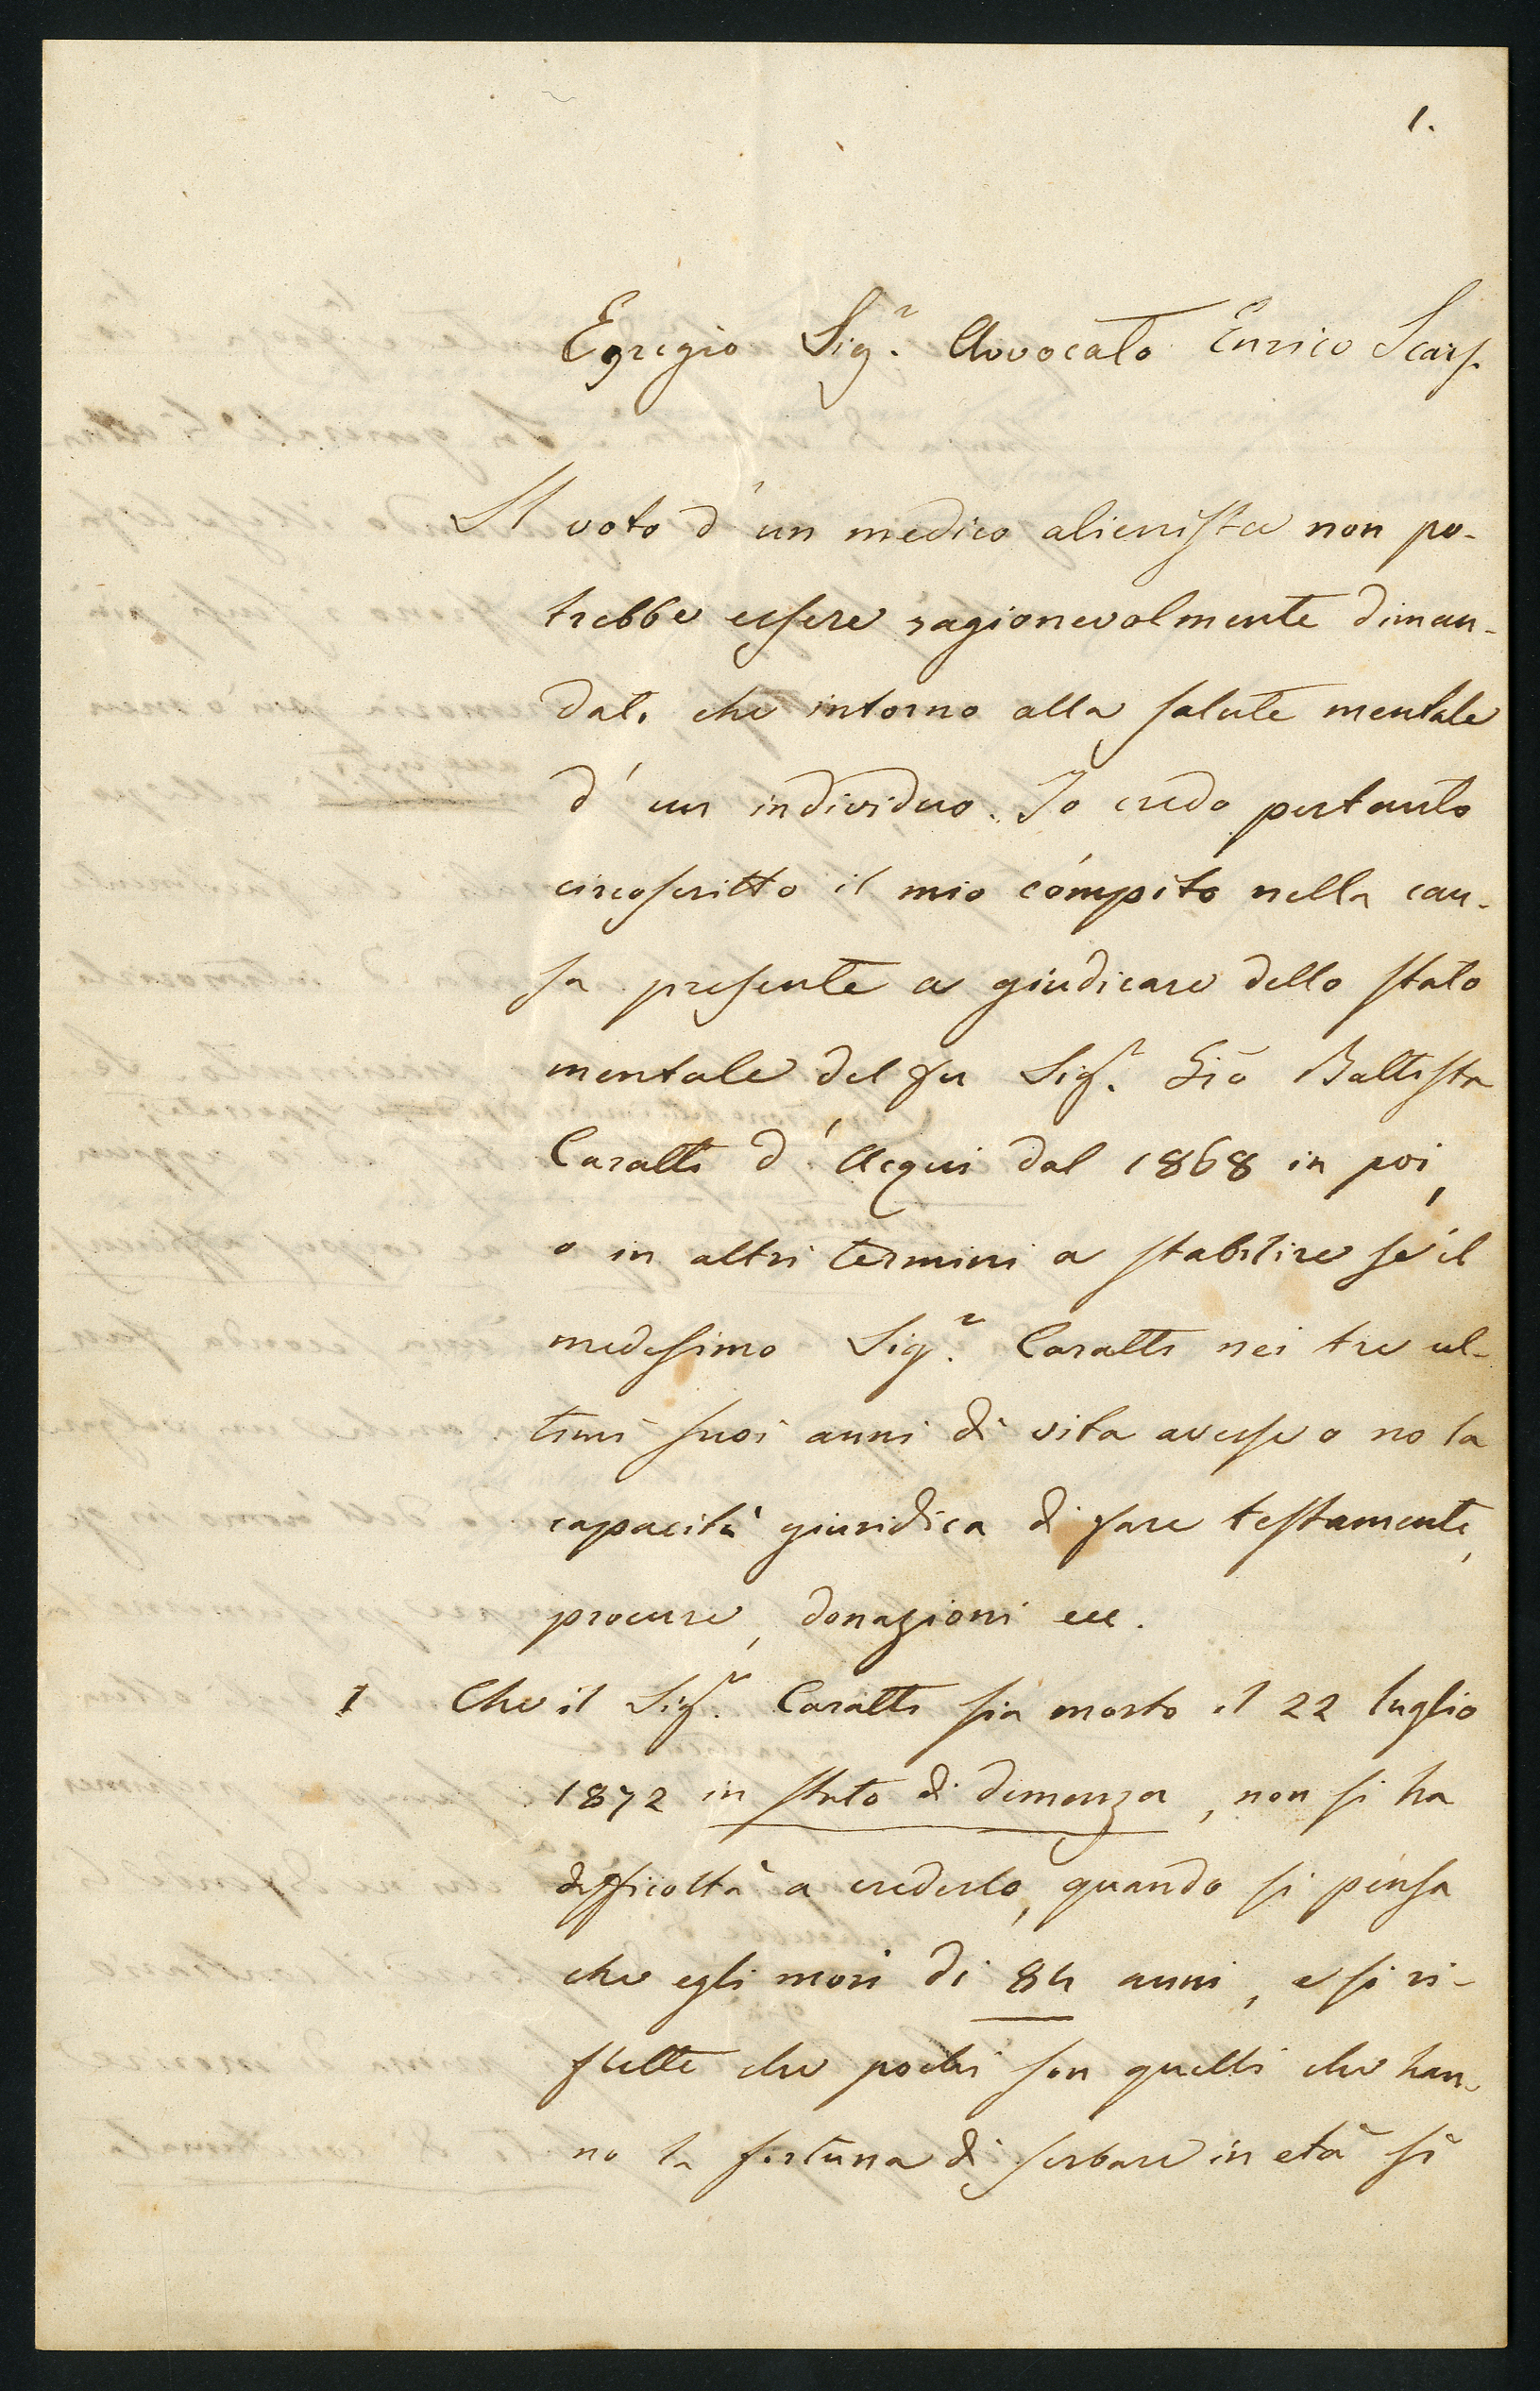 1.
Egregio Sig.r Avvocato Enrico Scarf.
Il voto d'un medico alienista non po-
trebbe essere ragionevolmente diman-
dato che intorno alla salute mentale
d'un individuo. Io credo pertanto
circoscritto il mio cómpito nella cau-
sa presente a giudicare dello stato
mentale del fu Sig.r Gio Battista
Caratti d'Acqui dal 1868 in poi,
o in altri termini a stabilire se il
medesimo Sig.r Caratti nei tre ul-
timi suoi anni di vita avesse o no la
capacità giuridica di fare testamenti,
procure, donazioni ecc.
I Che il Sig.r Caratti sia morto il 22 luglio
1872 in stato di demenza, non si ha
difficoltà a crederlo, quando si pensa
che egli morì di 84 anni, e si ri-
flette che pochi son quelli che han-
no la fortuna di serbare in età sì